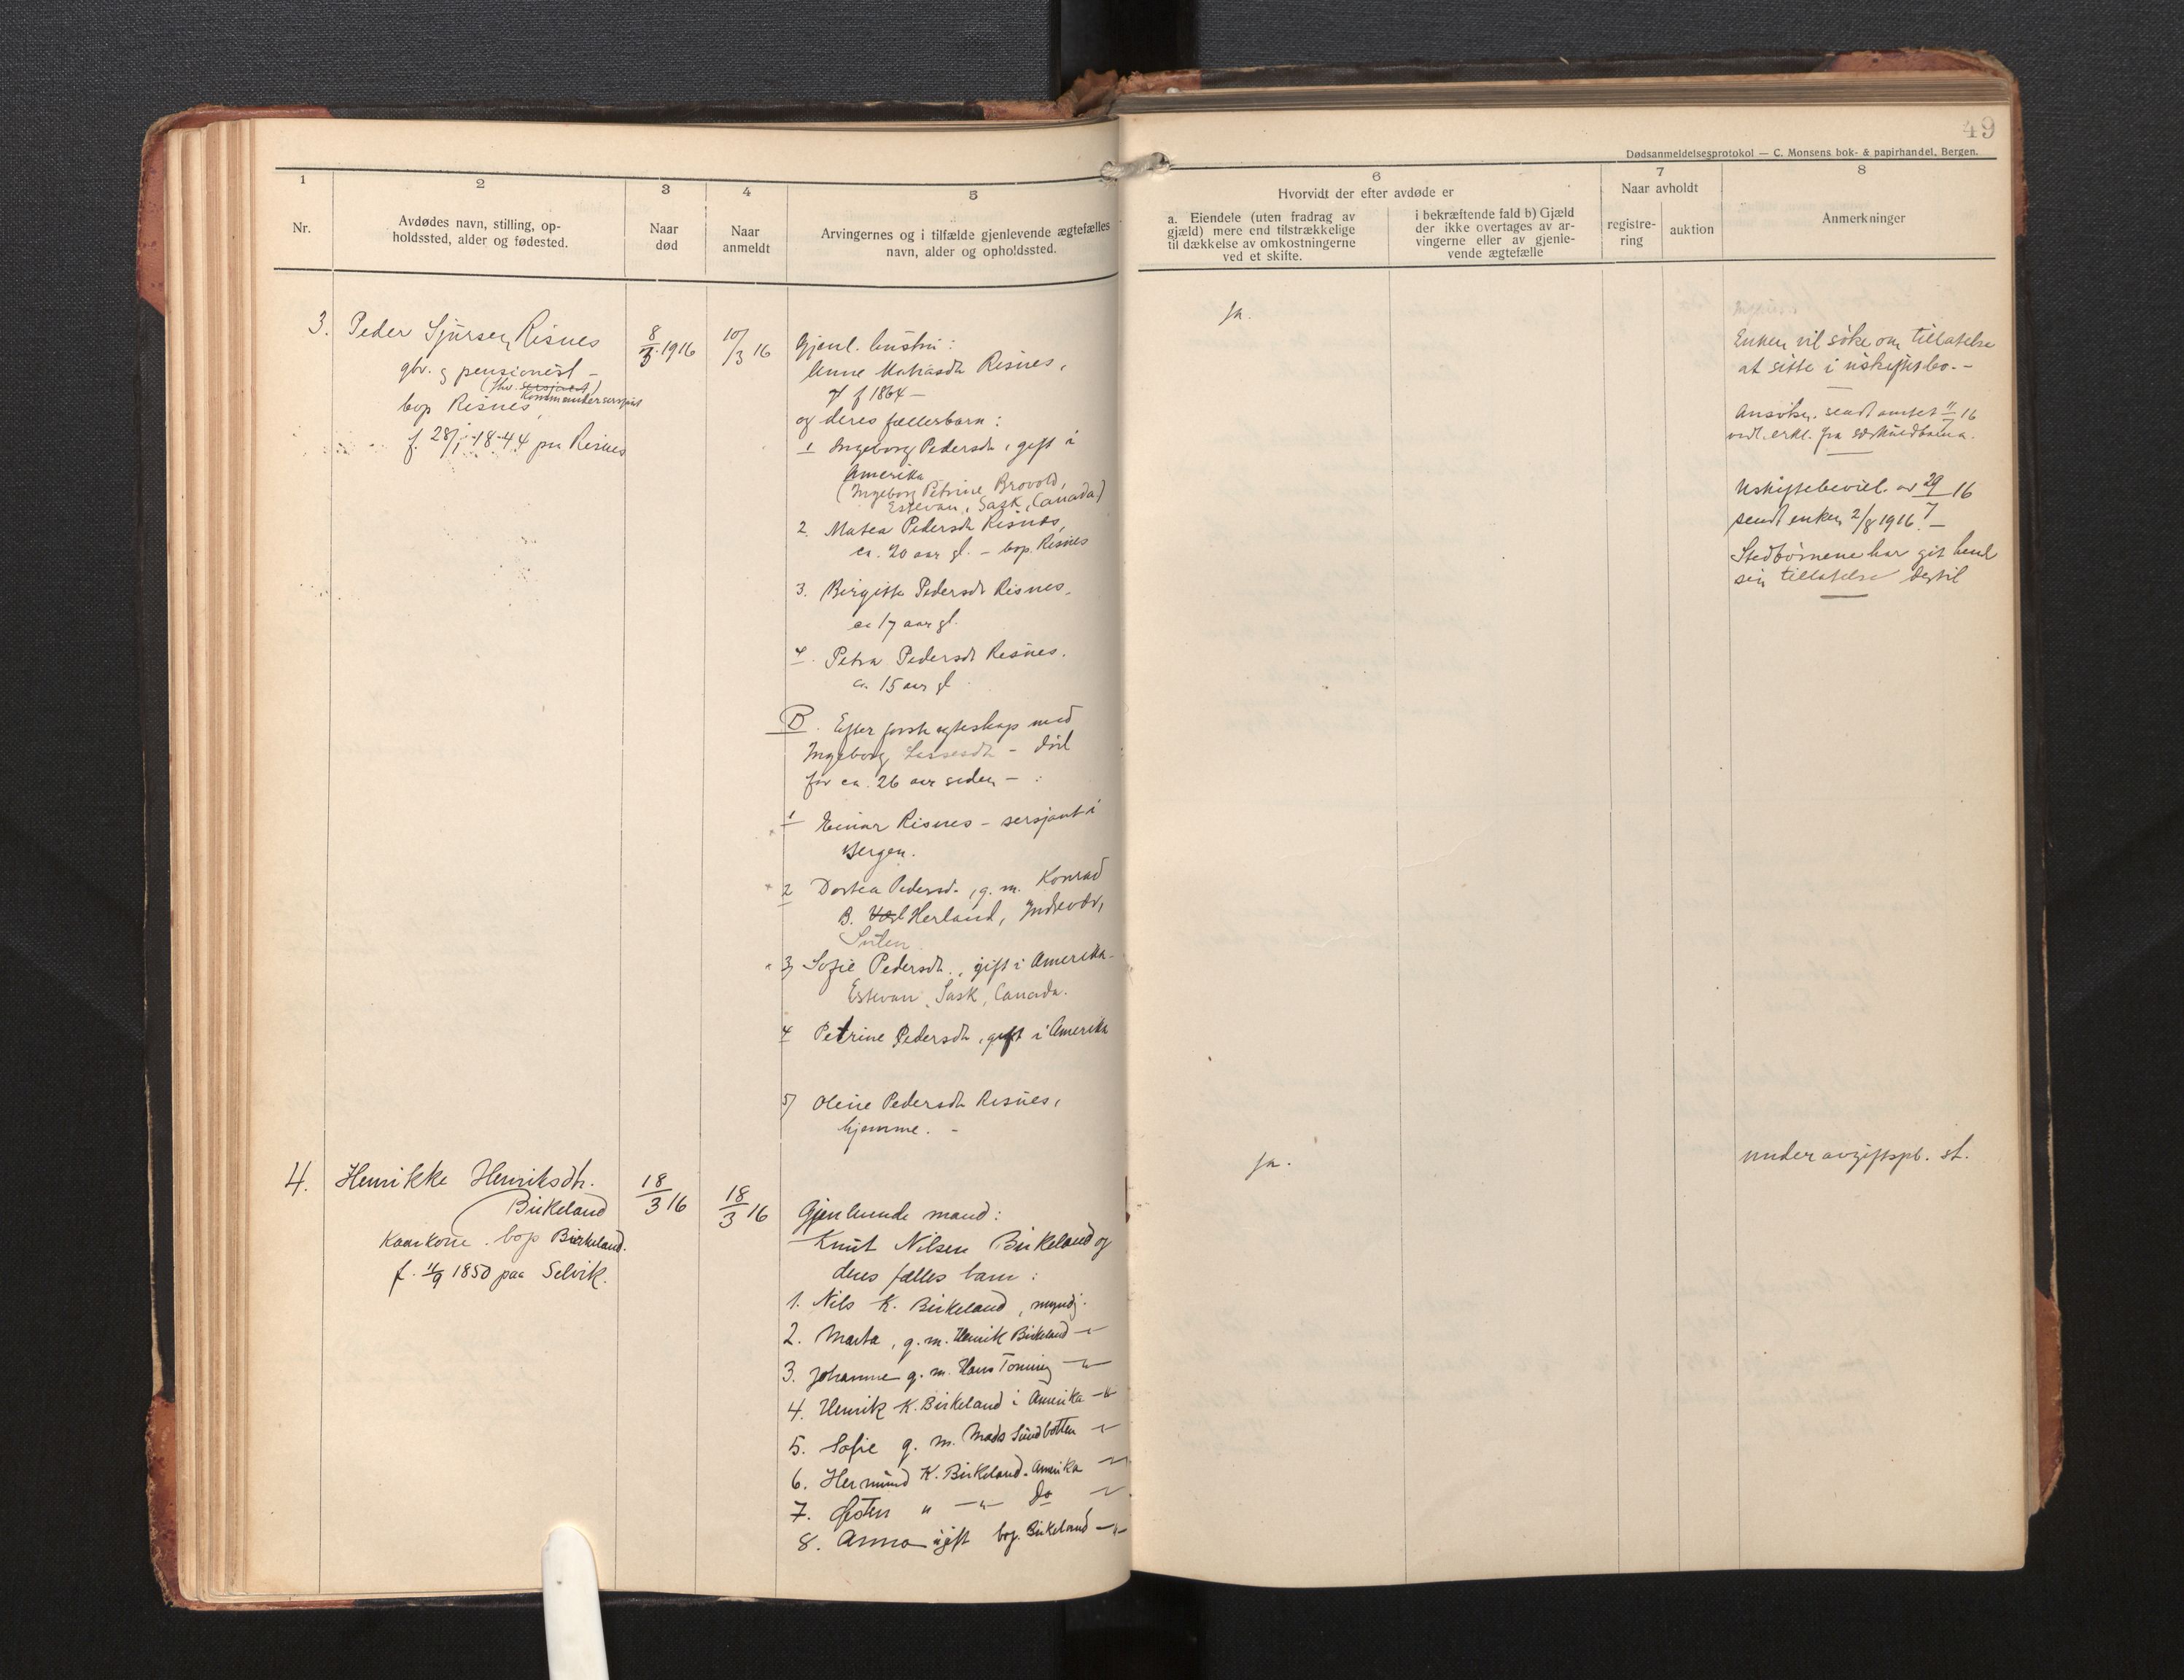 49
Dødsanmeldelsesprotokol — C. Monsens bok- & papirhandel, Bergen.
1
2
3
4
5
6
7
8
Nr.
Avdødes navn, stilling, op-
holdssted, alder og fødested.
Naar
død
Naar
anmeldt
Arvingernes og i tilfælde gjenlevende ægtefælles
navn, alder og opholdssted.
Hvorvidt der efter avdøde er
a. Eiendele (uten fradrag av
gjæld) mere end tilstrækkelige
til dækkelse av omkostningerne
ved et skifte.
i bekræftende fald b) Gjæld
der ikke overtages av ar-
vingerne eller av gjenle-
vende ægtefælle
Naar avholdt
registre-
ring
auktion
Anmerkninger
3.
Peder Sjursen Risnes
gbr. og pensionist -
(fhv. sersjant)
Kommandersersjant
bop Risnes,
f. 28/1 1844 paa Risnes
8/3 1916
10/3 16
Gjenl. hustru:
Anne Risnes,
f 1864 -
og deres fællesbarn:
1 Ingeborg Pedersdt, gift i
Amerika
(Ingeborg Petrine Brovold,
Estevan, Sask, Canada)
2. Matea Pedersdt Risnes,
ca. 20 aar gl. - bop. Risnes
3. Birgitte Pedersdt Risnes,
ca 17 aar gl.
4. Petra Pedersdt Risnes.
ca. 15 aar gl
B. Efter første egteskap med
Ingeborg - död
for ca. 26 aar siden - :
1 Einar Risnes - sersjant i
Bergen.
2 Dortea Pedersd., g. m. Konrad
B. Herland, Indrevær,
Sulen
3) Sofie Pedersdt., gift i Amerika -
Estevan, Sask, Canada.
4 Petrine Pedersdt, gift i Amerika
5) Oline Pedersdt Risnes,
hjemme. -
ja.
Enken vil söke om tillatelse
at sitte i uskiftet bo. -
Ansökn. sendt amtet 11/ 16
vedl. erkl. fra særkuldbarna.
Uskiftebevil. av 29/7 16
sendt enken 2/8 1916. -
Stedbörnene har git hend
sin tillatelse dertil
4.
Henrikke Henriksdtr.
Birkeland
Kaarkone. bop Birkeland.
f. 11/9 1850 paa Selvik.
18/3 16
18/3 16
Gjenlevende mand:
Knut Nilsen Birkeland og
deres fælles barn:
1. Nils K. Birkeland, myndj.
2. Marta, g. m. Henrik Birkeland -"-
3. Johanne g. m. Hans Torning -"-
4. Henrik K. Birkeland i Amerika -"-
5. Sofie g. m. Mads Sundbotten -"-
6. Hermund K. Birkeland. Amerika -"-
7. " -"- do -"-
8. Anna ugift bop. Birkeland -"-
ja.
under avgiftspl. st.